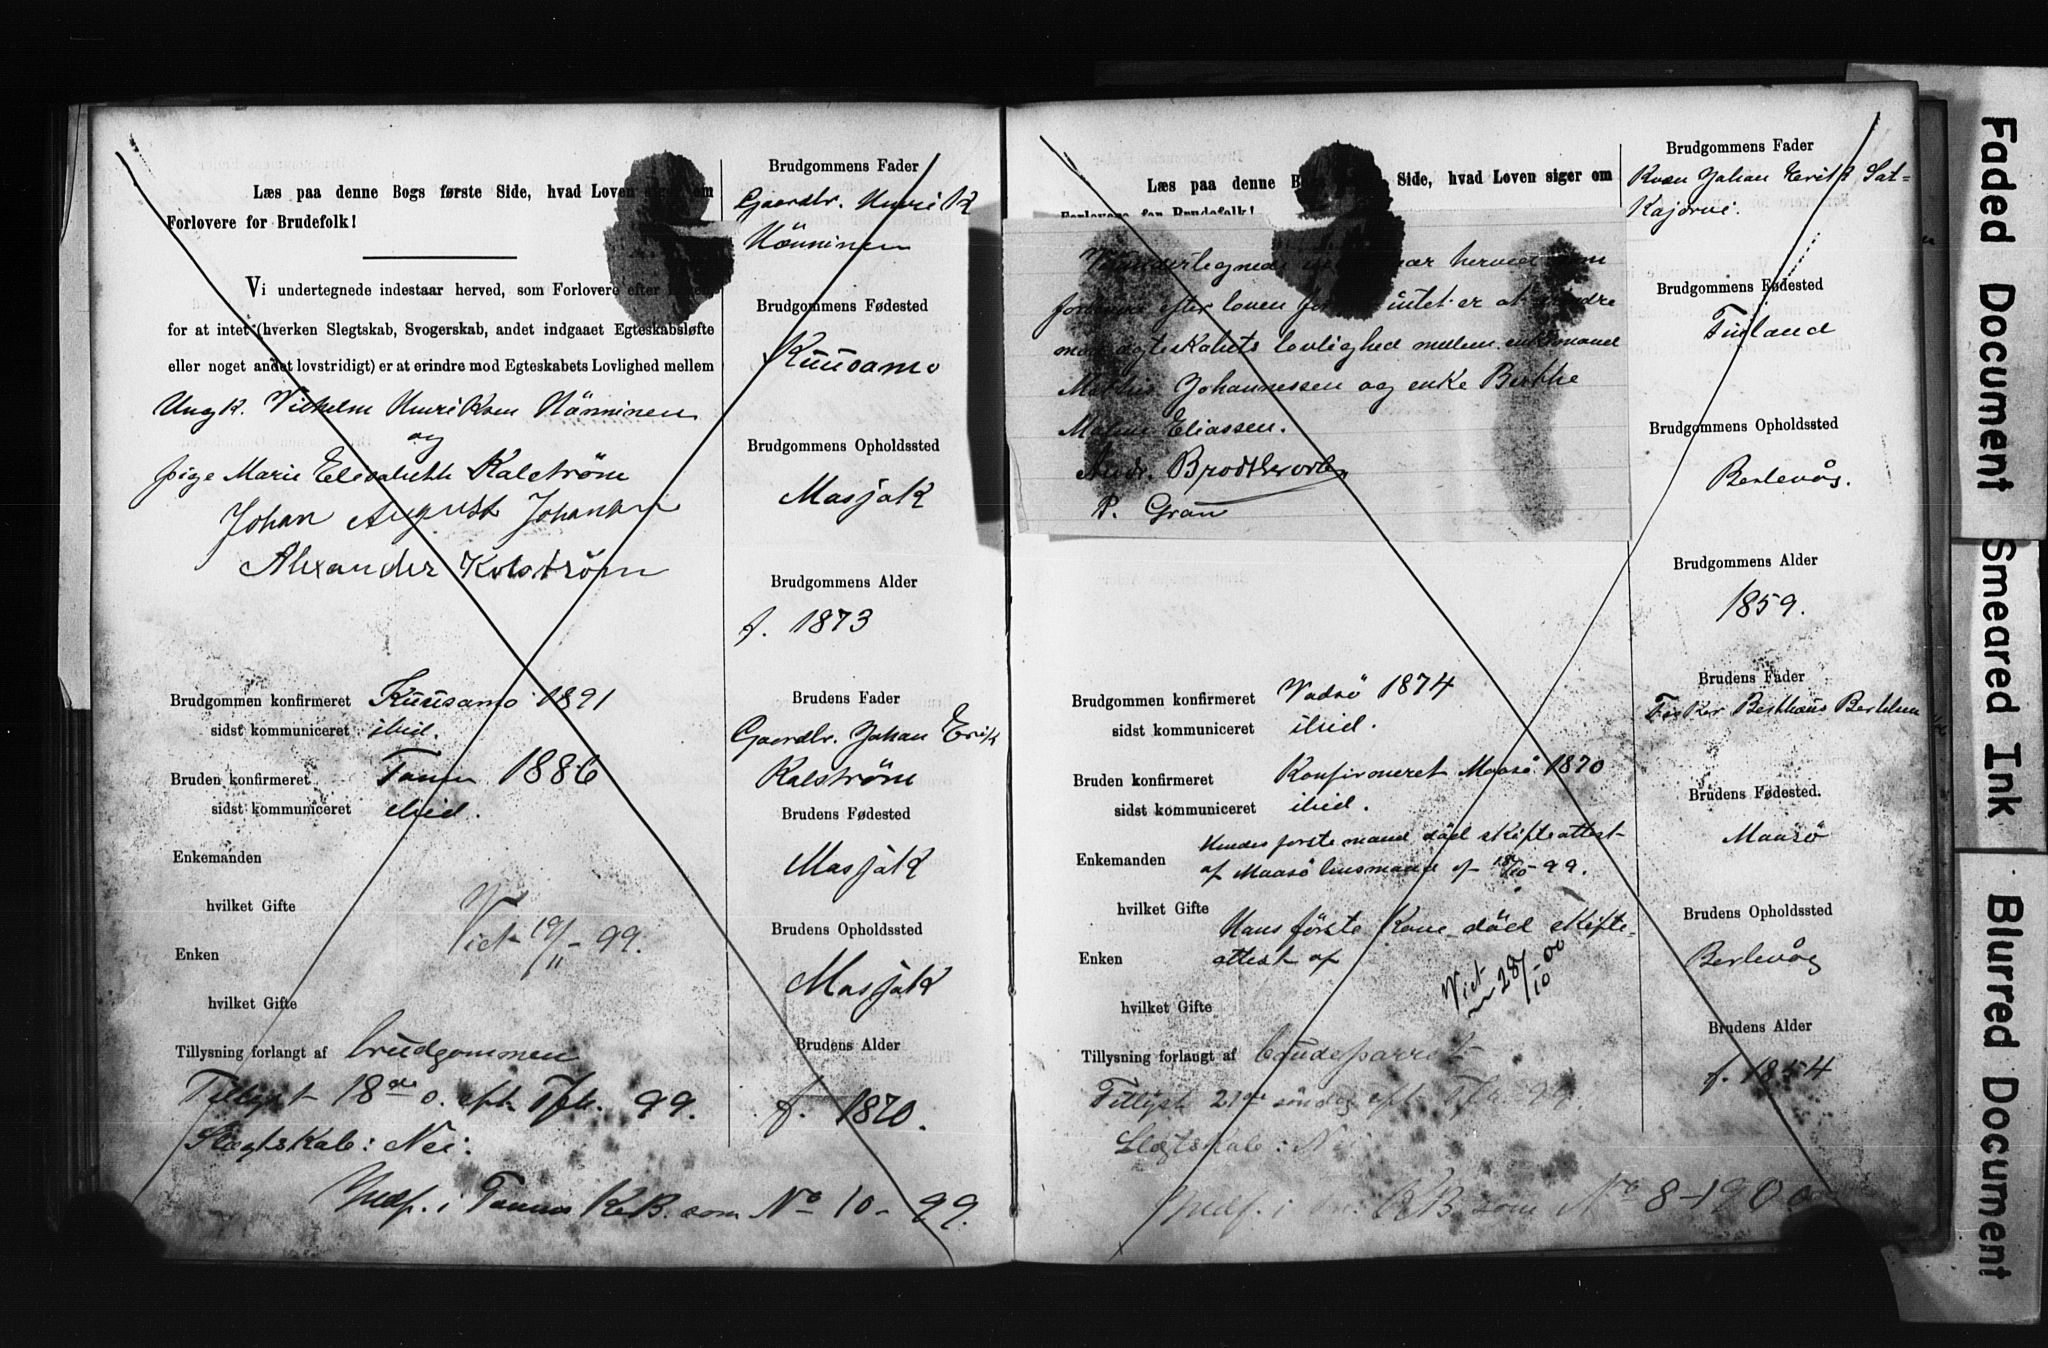 Læs paa denne Bogs første Side, hvad Loven siger om
Forlovere for Brudefolk!
Vi undertegnede indestaar herved, som Forlovere efter
for at intet (hverken Slegtskab, Svogerskab, andet indgaaet Egteskabsløfte
eller noget andet lovstridigt) er at erindre mod Egteskabets Lovlighed mellem
Ungk. Vilhelm Henriksen Hänninen
og
pige Marie Elisabeth Kalström
Johan August Johansen
Alexander Kolström
Brudgommen konfirmeret Kuusamo 1891
sidst kommuniceret ibid.
Bruden konfirmeret Tanen 1886
sidst kommuniceret ibid.
Enkemanden
hvilket Gifte
Viet 19/11 - 99.
Enken
hvilket Gifte
Tillysning forlangt af brudgommen
Tillyst 18de s. eft. Tfh. 99.
Slægtskab: Nei.
Indf. i Tanens K.B. som No 10 - 99.
Brudgommens Fader
Gaardbr. Henrik
Hänninen
Brudgommens Fødested
Kuusamo
Brudgommens Opholdssted
Masjok
Brudgommens Alder
f. 1873
Brudens Fader
Gaardbr. Johan Erik
Kalström
Brudens Fødested
Masjok
Brudens Opholdssted
Masjok
Brudens Alder
f. 1870.
Læs paa denne Side, hvad Loven siger om
Forlovere for Brudefolk!
Vi undertegnede herved som
forlovere efter loven for intet er at erindre
mod egteskabets lovlighed mellem enkemand
Mathis Johannessen og enke Berthe
Malene Eliassen.
Andr. Brodtkorb
P. Gran
Brudgommen konfirmeret Vadsö 1874
sidst kommuniceret ibid.
Bruden konfirmeret Konfirmeret Maasö 1870
sidst kommuniceret ibid.
Enkemanden Hendes forste mand död skifteattest
af Maasö lensmand af 18/10 - 99.
hvilket Gifte Hans förste Kone död skifte-
Enken attest af
Viet 28/10 - 00
hvilket Gifte
Tillysning forlangt af brudeparret
Tillyst 21de söndag eft. Tfh. 99.
Slægtskab: Nei
Indf. i K.B. som No 8 - 1900
Brudgommens Fader
Kvæn Johan Erik Sat-
Kajærvi.
Brudgommens Fødested
Finland
Brudgommens Opholdssted
Berlevåg.
Brudgommens Alder
1859.
Brudens Fader
Fisker Berthæus Bertelsen
Brudens Fødested.
Maasö
Brudens Opholdssted
Berlevåg
Brudens Alder
f. 1854
Faded Document
Smeared Ink
Blurred Document